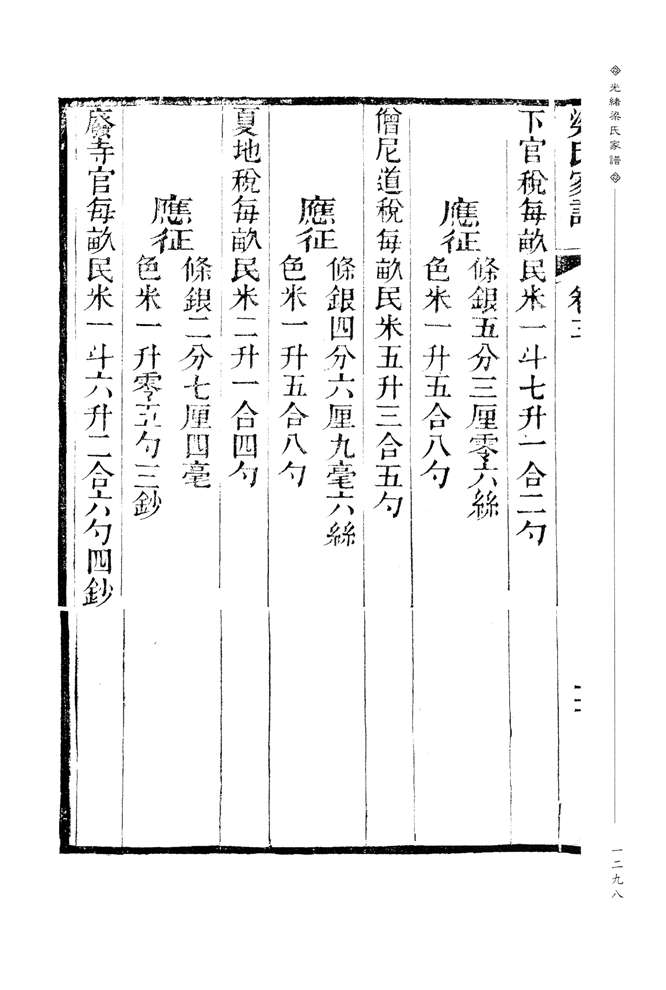 光緒梁氏家譜
一二九八
梁氏家譜 卷三
下官稅每畝民米一斗七升一合二勺
應征
條銀五分三厘零六絲
色米一升五合八勺
僧尼道稅每畝民米五升三合五勺
應征
條銀四分六厘九毫六絲
色米一升五合八勺
夏地稅每畝民米二升一合四勺
應征
條銀二分七厘四毫
色米一升零五勺三鈔
廢寺官每畝民米一斗六升二合六勺四鈔